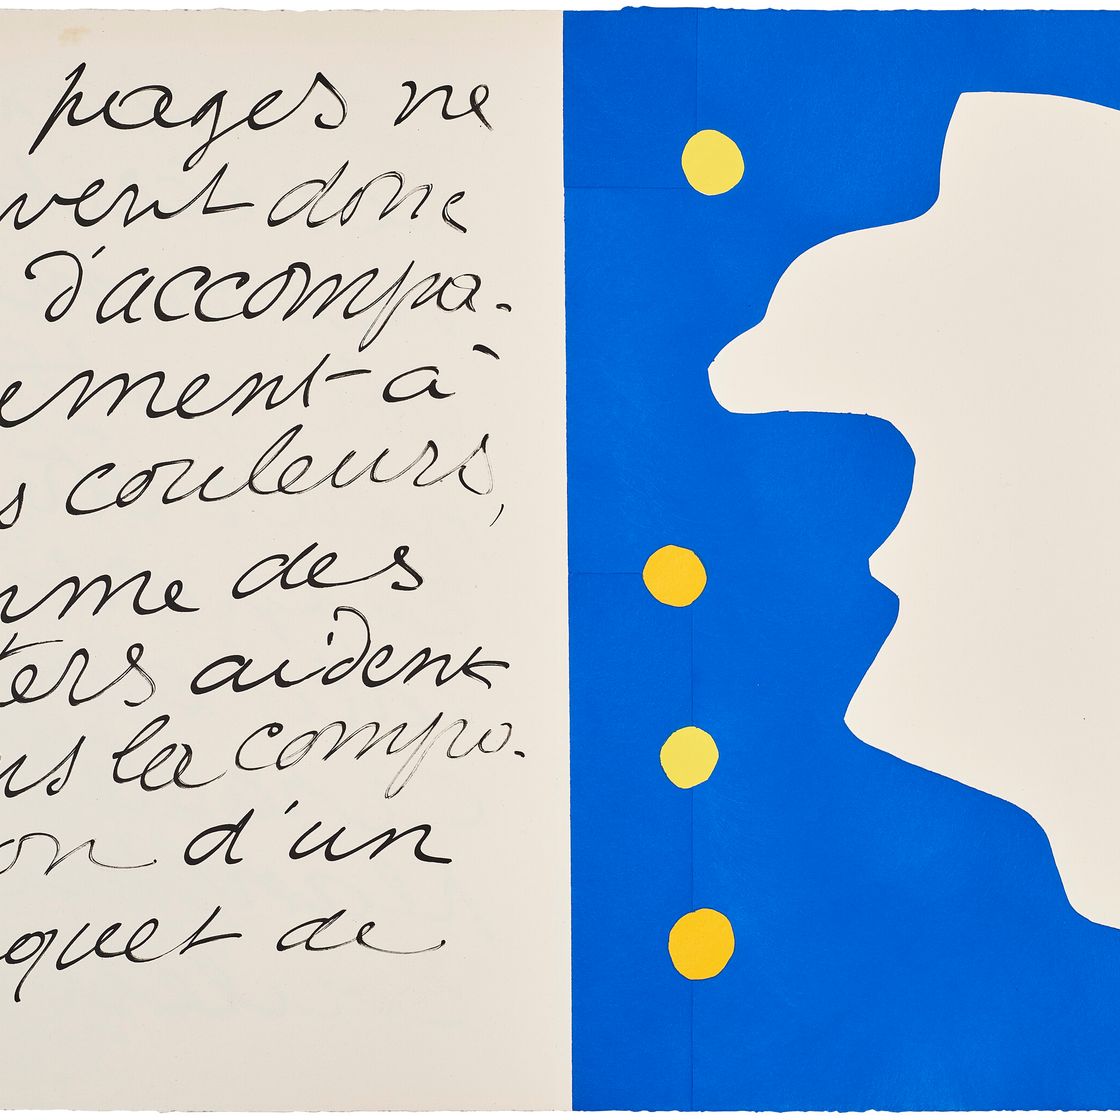 pages ne
vent donc
d'accompa-
ement à
s couleurs,
mme des
ters aident
ns la compo-
on d'un
quet de